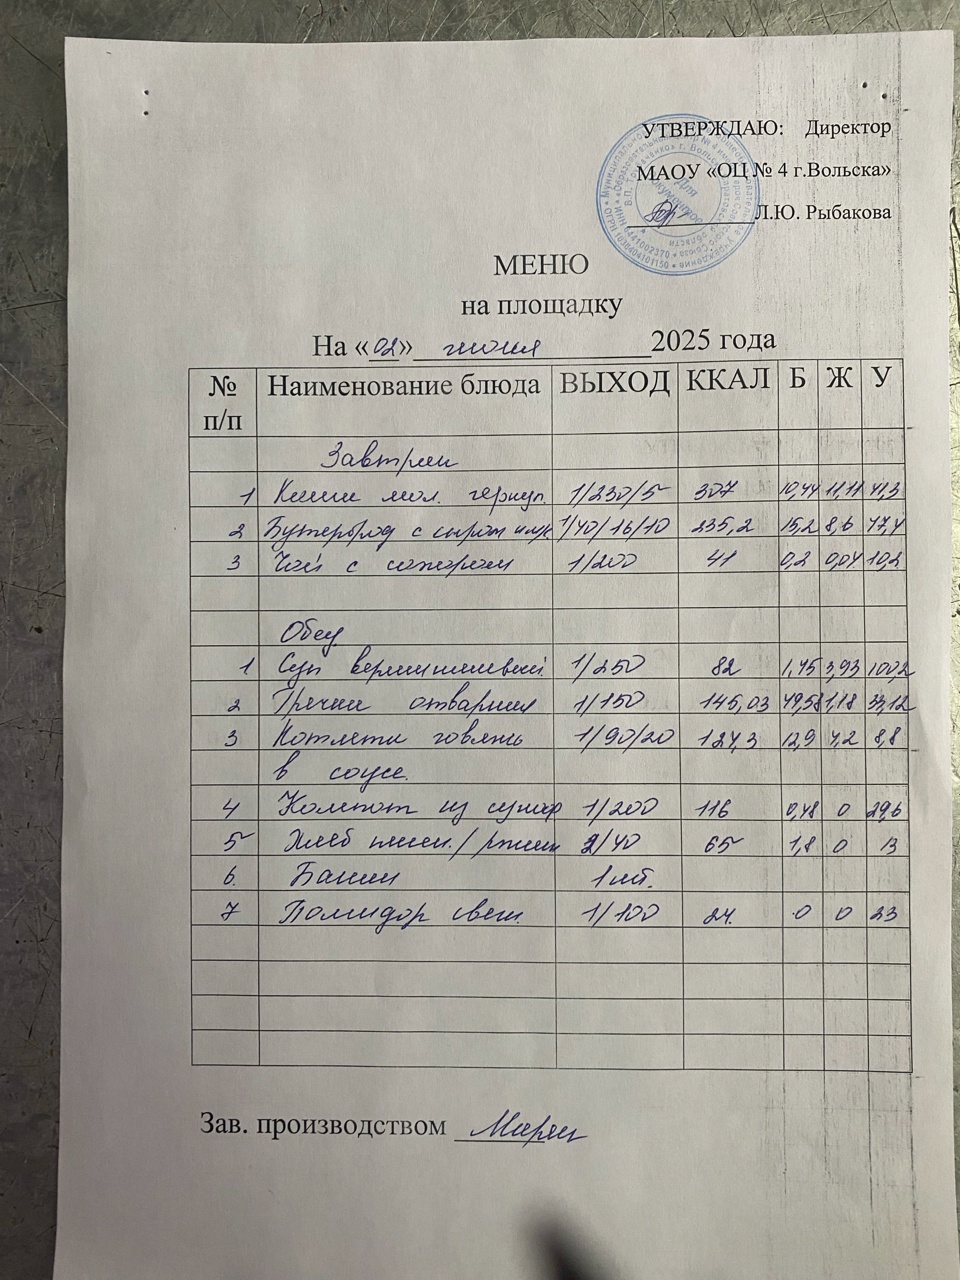 УТВЕРЖДАЮ: Директор
МАОУ «ОЦ № 4 г.Вольска»
Л.Ю. Рыбакова
Для документов
МЕНЮ
на площадку
На «02» июня 2025 года
№ п/п Наименование блюда ВЫХОД ККАЛ Б Ж У
Завтрак
1 Каша мол. геркул. 1/230/5 307 10,44 11,11 41,3
2 Бутерброд с сыром 1/40/16/10 235,2 15,2 8,6 47,4
3 Чай с сахаром 1/200 41 0,2 0,04 10,2
Обед
1 Суп вермишелевый 1/250 82 1,45 3,93 100,2
2 Гречка отварная 1/150 145,03 49,58 1,18 33,12
3 Котлета говяж 1/90/20 124,3 12,9 4,2 8,8
в соусе.
4 Компот из сухоф 1/200 116 0,48 0 29,6
5 Хлеб пшен./ржан 2/40 65 1,8 0 13
6. Банан 1 шт.
7 Помидор свеж. 1/100 24. 0 0 23
Зав. производством